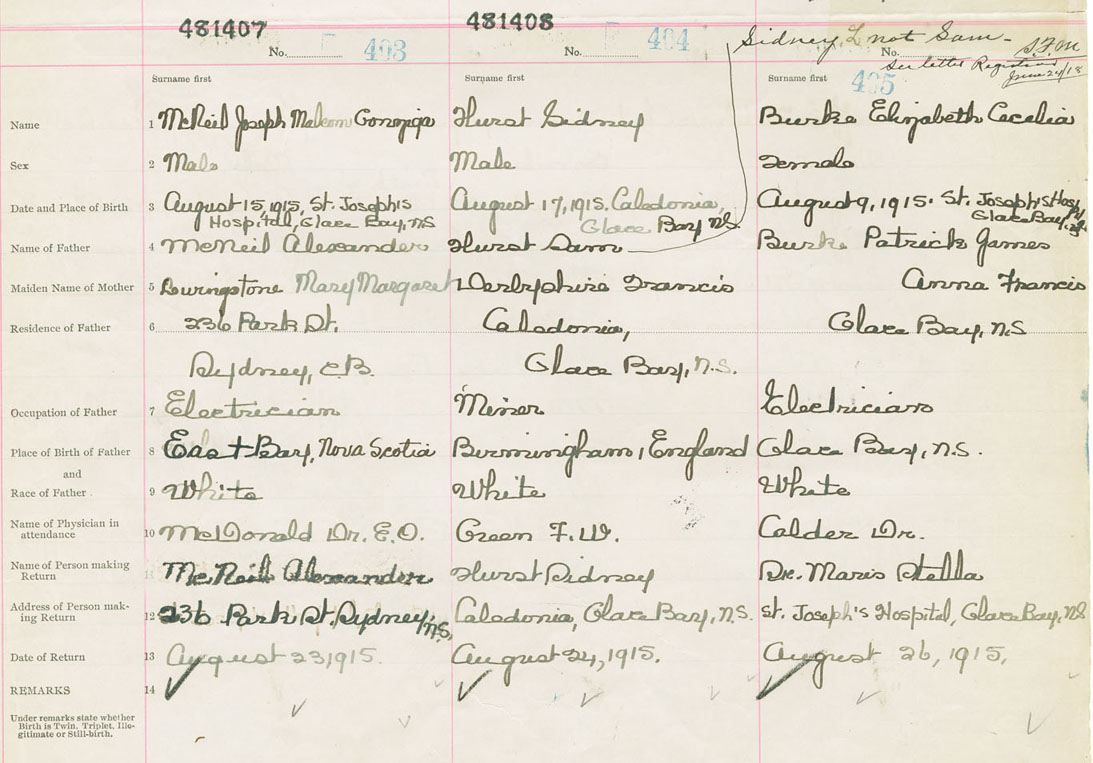 481407 481408
Sidney, L not Sam - S.F.M
No. F 403 No. F 404 No.
See letter Registrar June 24/18
405
Surname first Surname first Surname first
Name 1 McNeil Joseph Malcom Gonzaga Hurst Sidney Burke Elizabeth Cecelia
Sex 2 Male Male Female
Date and Place of Birth 3 August 15, 1915, St. Joseph's August 17, 1915. Caledonia, August 9, 1915. St. Joseph's Hosp
Hospital, Glace Bay, N.S Glace Bay N.S. Glace Bay, N.S.
Name of Father 4 McNeil Alexander Hurst Sam Burke Patrick James
Maiden Name of Mother 5 Livingstone Mary Margaret Derbyshire Francis Anna Francis
Residence of Father 6 236 Park St. Caledonia, Glace Bay, N.S
Sydney, C.B. Glace Bay, N.S.
Occupation of Father 7 Electrician Miner Electrician
Place of Birth of Father 8 East Bay, Nova Scotia Birmingham, England Glace Bay, N.S.
and
Race of Father 9 White White White
Name of Physician in
attendance 10 McDonald Dr. E.O. Green F.W. Calder Dr.
Name of Person making
Return 11 McNeil Alexander Hurst Sidney Sr. Maris Stella
Address of Person mak-
ing Return 12 236 Park St. Sydney, N.S, Caledonia, Glace Bay, N.S. St. Joseph's Hospital, Glace Bay, N.S
Date of Return 13 August 23, 1915. August 24, 1915. August 26, 1915,
REMARKS 14
Under remarks state whether
Birth is Twin, Triplet, Ille-
gitimate or Still-birth.